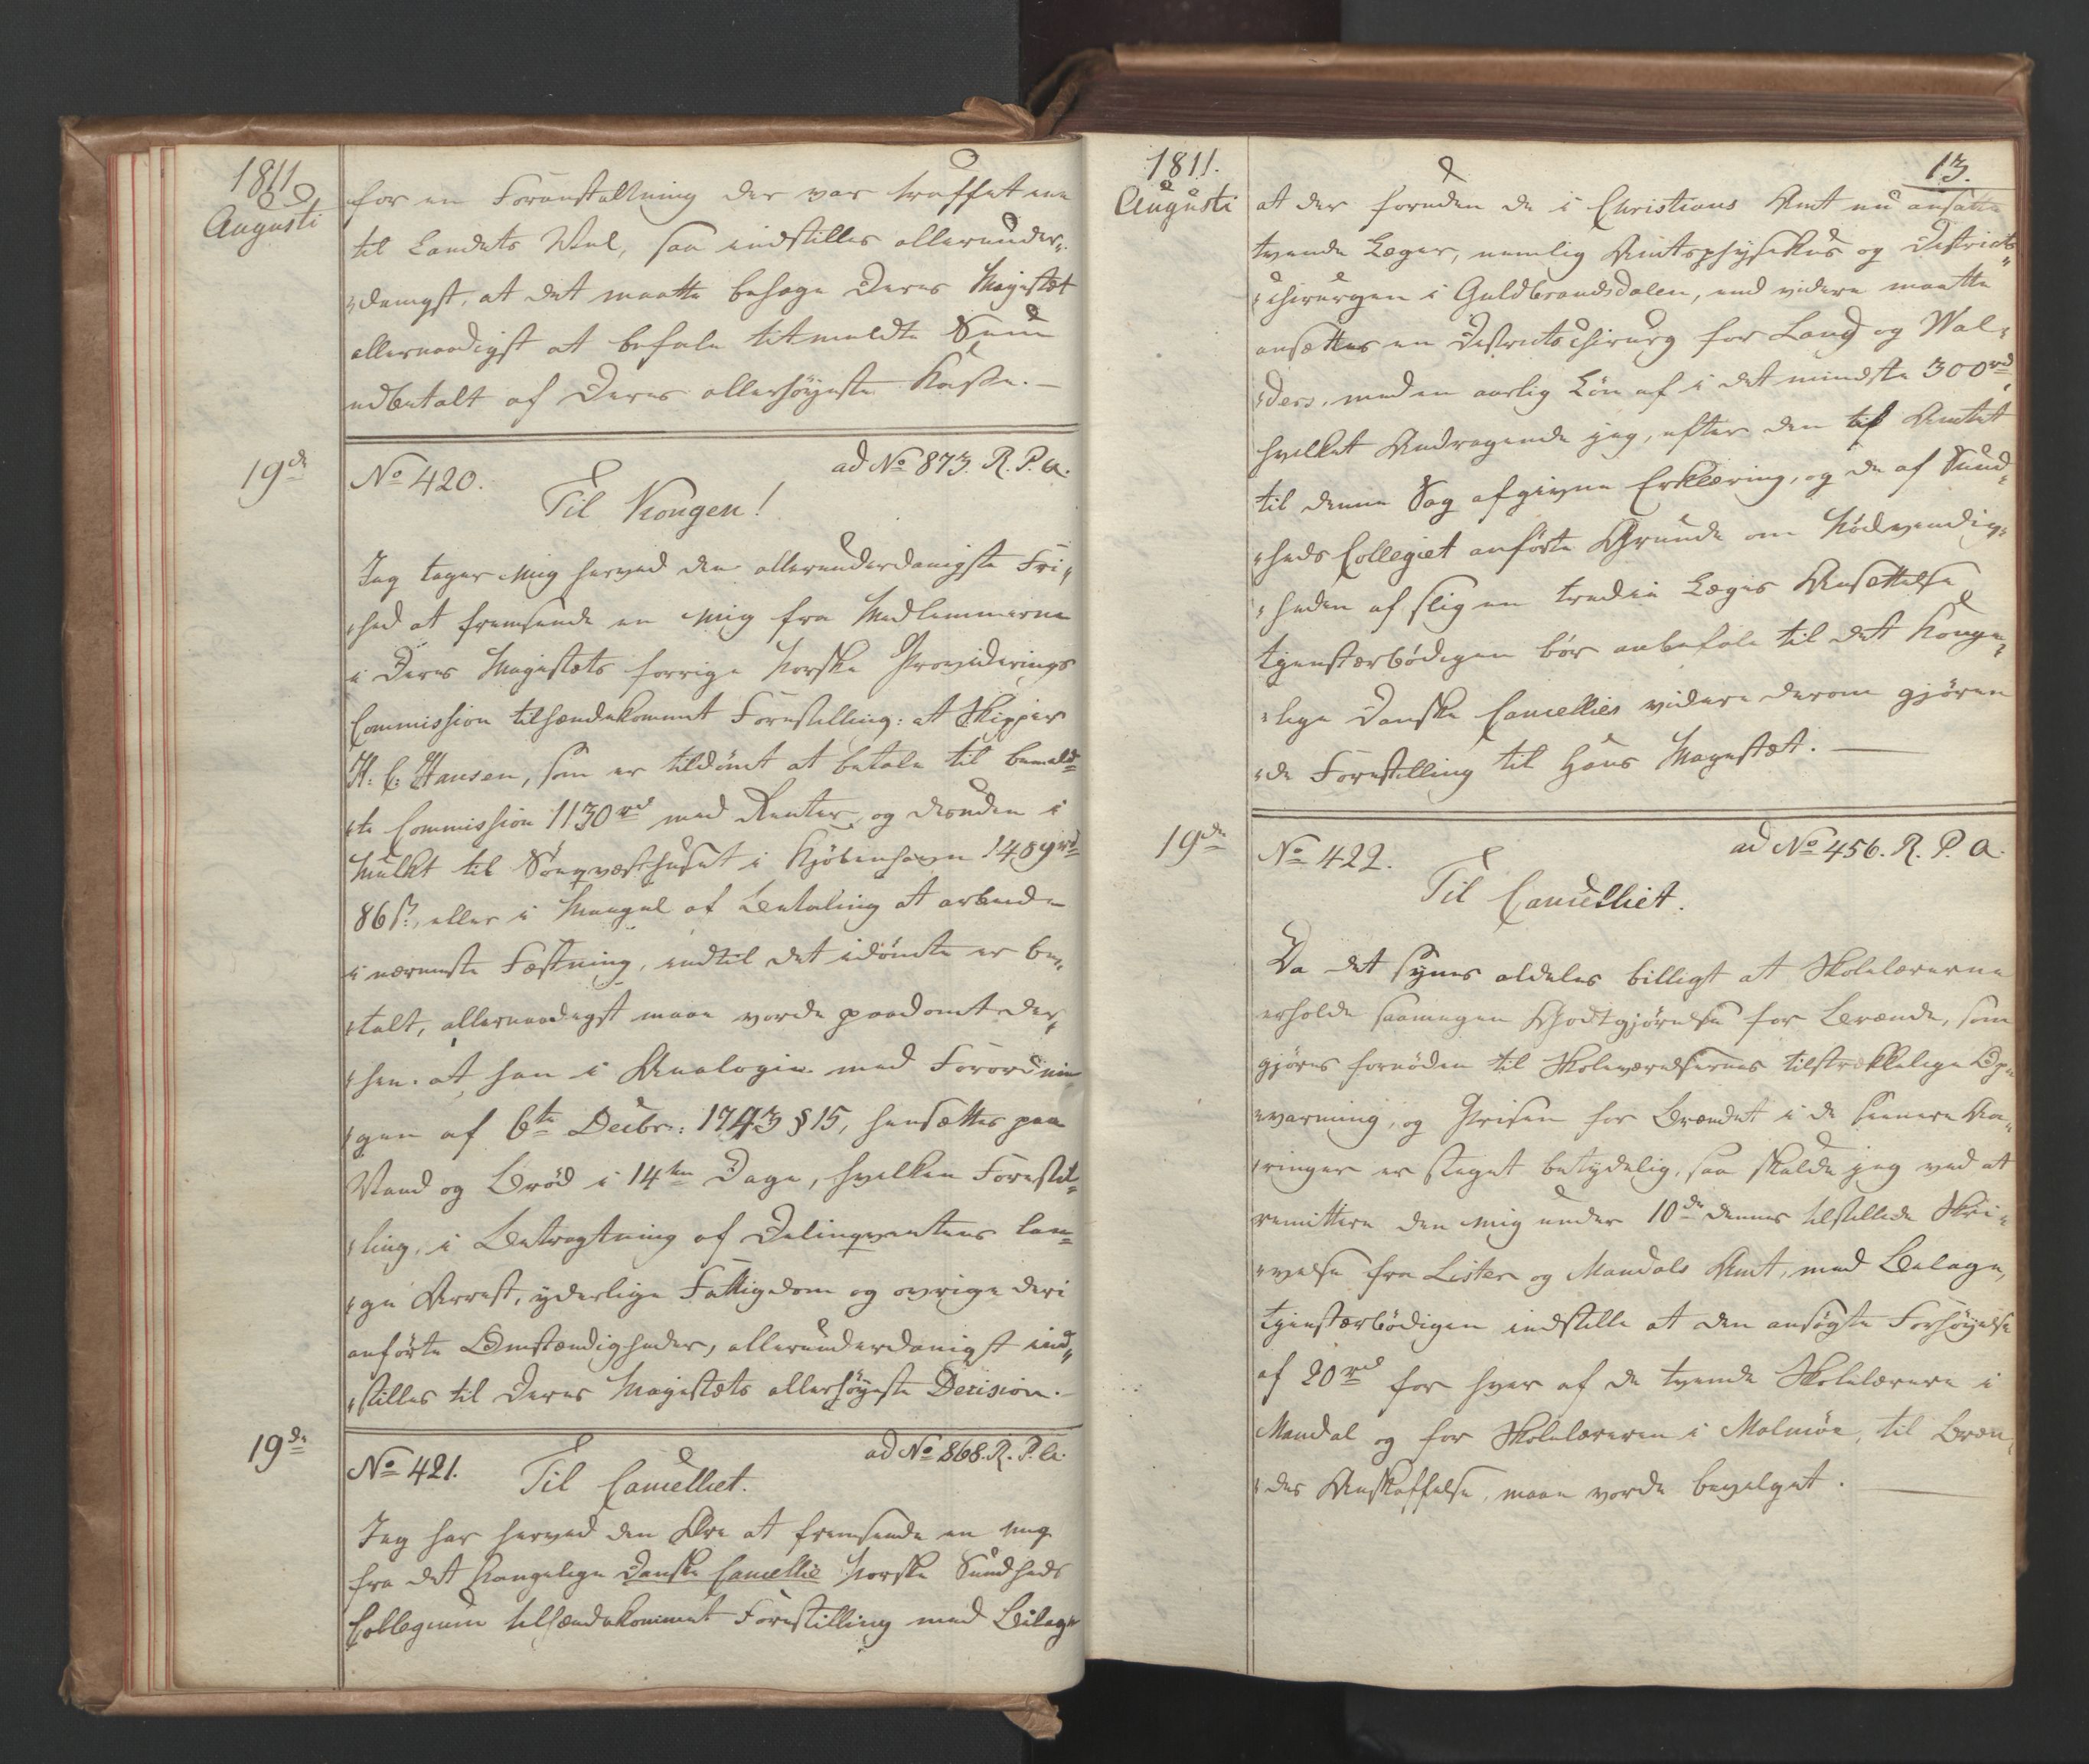 1811
Augusti
for en Foranstaltning der var truffet ene
til Landets Vel, saa indstilles allerunder-
danigst, at det maatte behage Deres Majestæt
allernaadigst at befale titmeldte Sum
udbetalt af Deres allerhöyeste Kasse.—
19de
No 420.
ad No 873. R. P. A.
Til Kongen!
Jeg tager mig herved den allerunderdanigste Fri-
hed at fremsende en mig fra Medlemmerne
i Deres Majestæts forrige Norske Provideerings
Commission tilhændekommet Forestilling: at Skipper
H: C: Hansen, som er tildömt at betale til bemeld-
te Commission 1130 rd med Renter, og desuden i
Mulkt til Söeqvæsthuset i Kjöbenhavn 1489 rd
86 s:, eller i Mangel af Betaling at arbeide
i nærmeste Fæstning, indtil det idömte er be-
talt, allernaadigst maae vorde paadömt der-
hen: at han i Analogie med Forordnin
gen af 6te Decbr: 1743 § 15, hensættes paa
Vand og Bröd i 14ten Dage, hvilken Forestil-
ling, i Betragtning af Delinqventens lan-
ge Arrest, yderlige Fattigdom og övrige deri
anförte Omstændigheder, allerunderdanigst ind-
stilles til Deres Majestæts allerhöyeste Decision.—
19de
No 421.
ad No 868. R. P. A.
Til Cancelliet.
Jeg har herved den Ære at fremsende en mig
fra det Kongelige Danske Cancellie Norske Sundheds
Collegium tilhændekommet Forestilling med Bilage
1811.
Augusti
13.
at der foruden de i Christians Amt nu ansatte
tvende Læger, nemlig Amtsphysikus og Districts-
chirurgen i Guldbrandsdalen, end videre maatte
ansættes en Districtschirurg for Land og Val-
ders, med en aarlig Lön af i det mindste 300 rd,
hvilket Andragende jeg, efter den til Amtet
til denne Sag afgivne Erklæring, og de af Sund-
heds Collegiet anförte Grunde om Nödvendig-
heden af slig en tredie Læges Ansættelse
tjenstærbödigen bör anbefale til det Konge-
lige Danske Cancellies videre derom gjören-
de Forestilling til Hans Majestæt.—
19de
No 422.
ad No 456. R. P. A.
Til Cancelliet.
Da det synes aldeles billigt at Skolelærerne
erholde saamegen Godtgjörelse for Brænde, som
gjöres fornöden til Skoleværelsernes tilstrækkelige Op-
varmning, og Prisen for Brændet i de senere Aa-
ringer er steget betydelig, saa skulde jeg ved at
remittere den mig under 10de dennes tilstillede Skri-
velse fra Lister og Mandals Amt, med Belage,
tjenstærbödigen indstille at den ansögte Forhöyelse
af 20 rd for hver af de tvende Skolelærere i
Mandal og for Skolelæreren i Malmöe, til Bræn-
des Anskaffelse, maae vorde bevilget.—